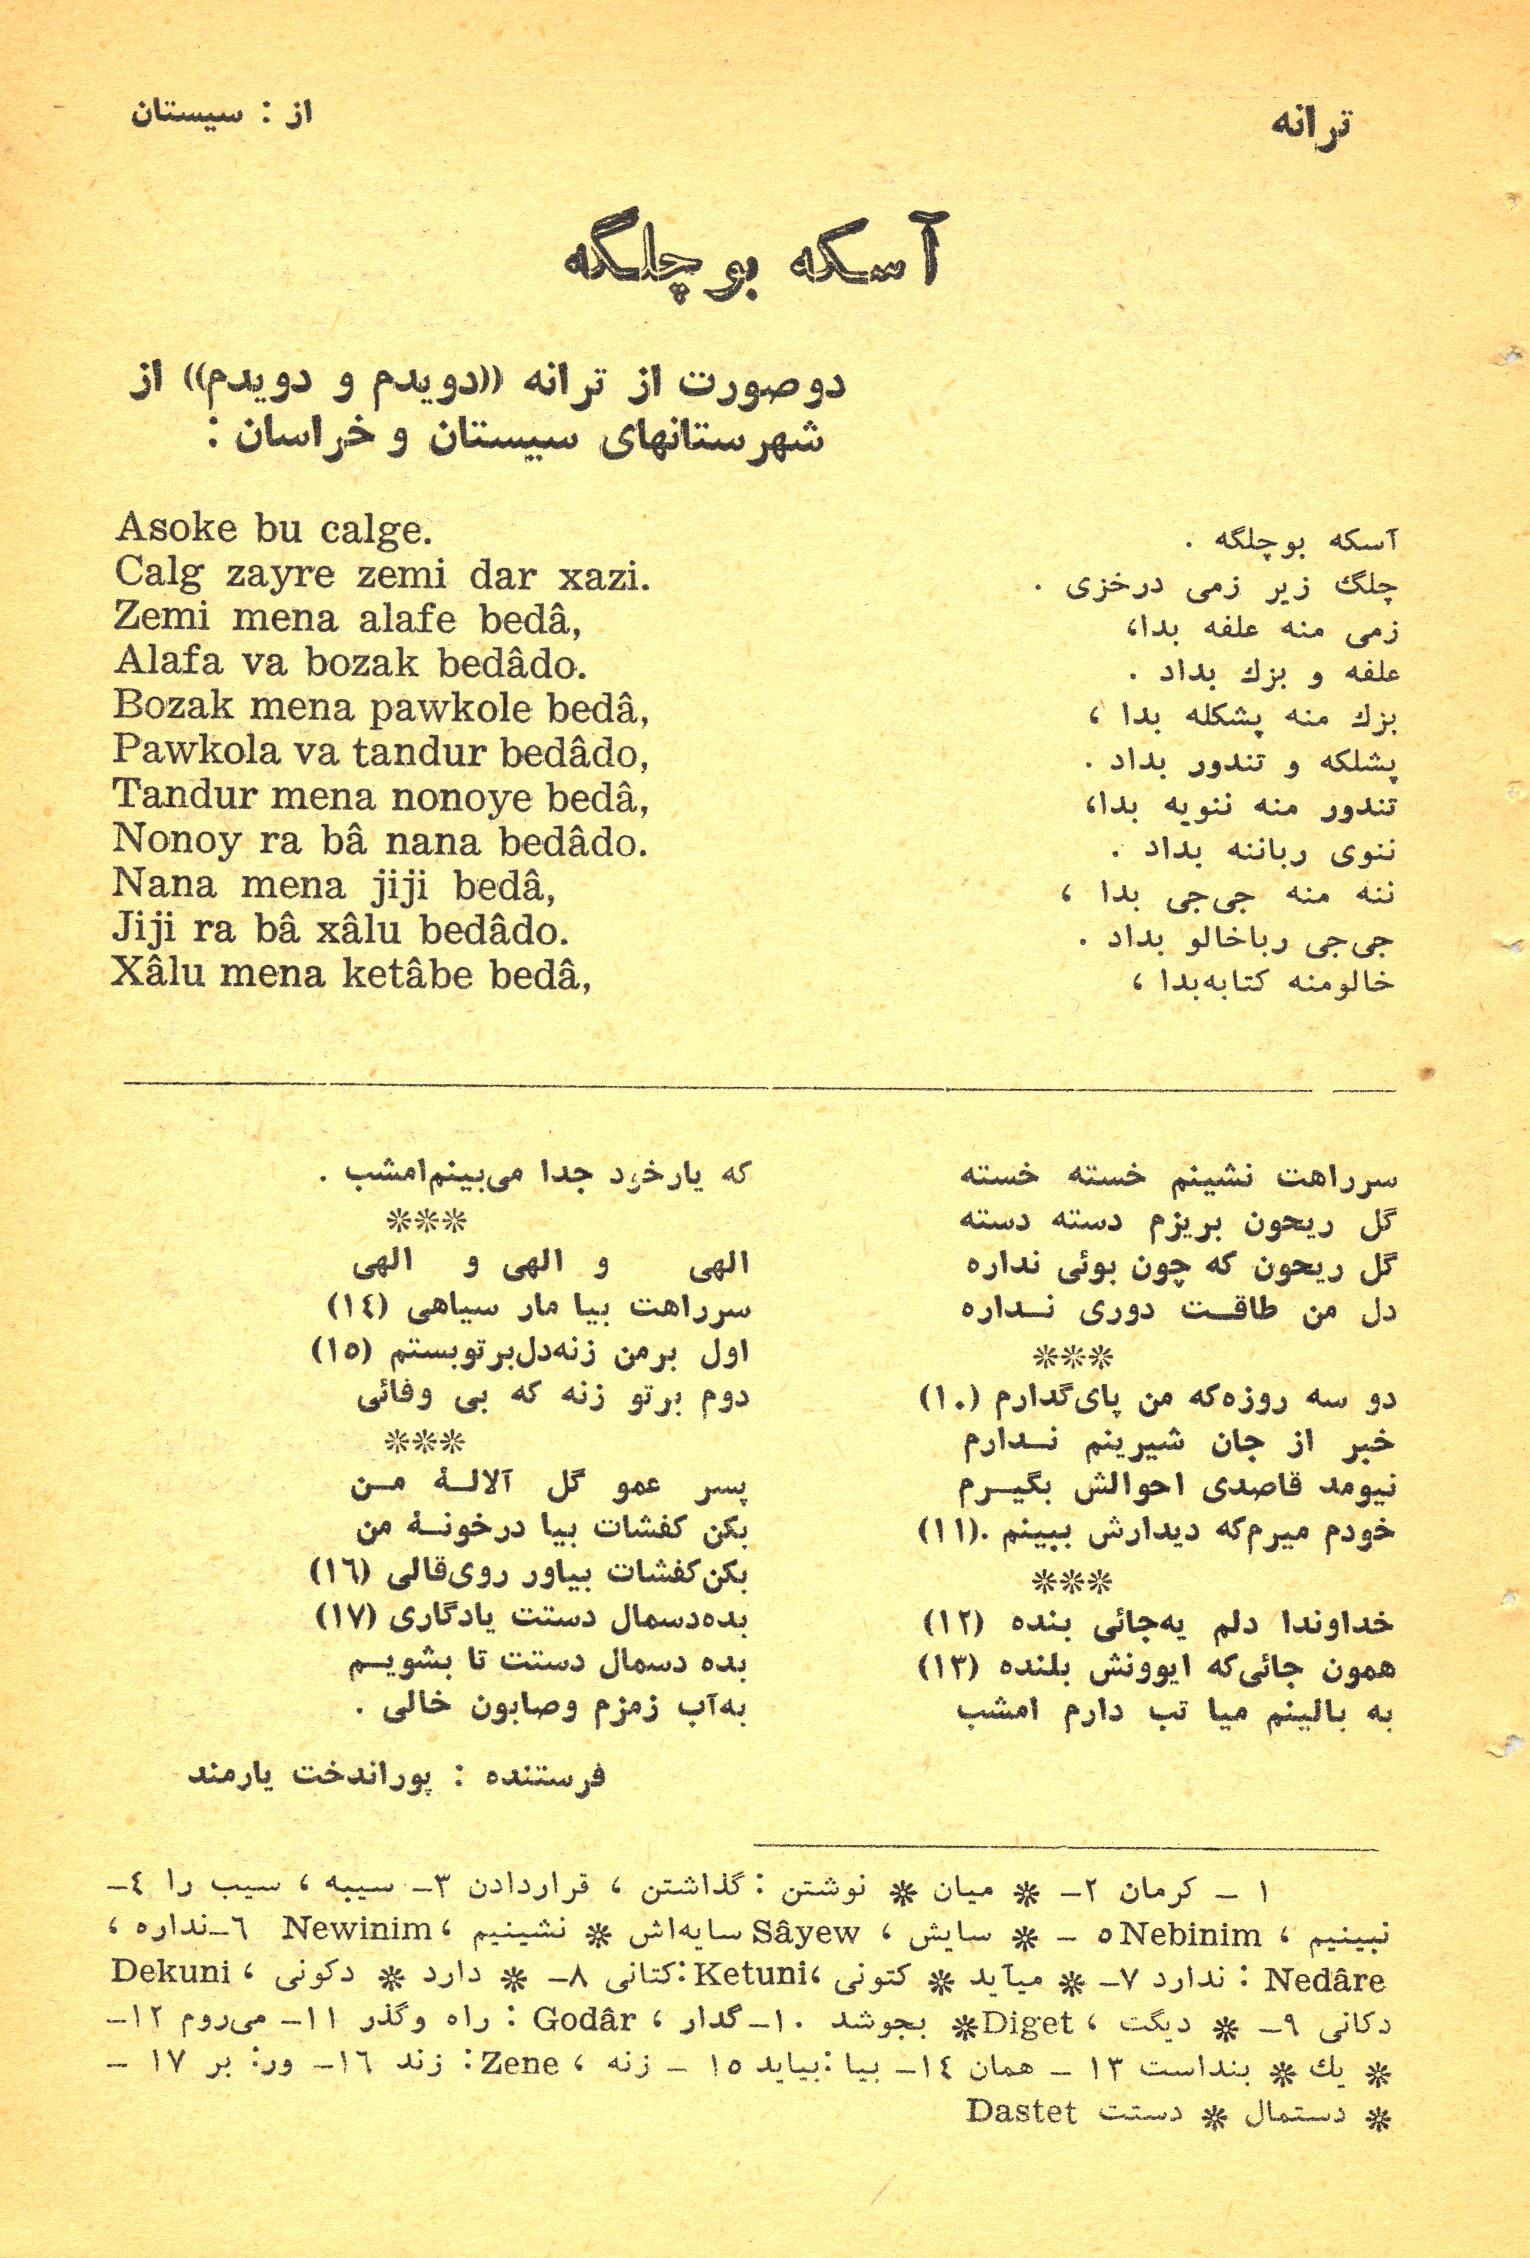 ترانه
از : سیستان
آسکه بو چلگه
دو صورت از ترانه ((دویدم و دویدم)) از
شهرستانهای سیستان و خراسان :
آسکه بوچلگه .
چلگ زیر زمی درخزی .
زمی منه علفه بدا،
علفه و بزك بداد .
بزك منه پشکله بدا ،
پشلکه و تندور بداد .
تندور منه ننویه بدا،
ننوی رباننه بداد .
ننه منه جی‌جی بدا ،
جی‌جی رباخالو بداد .
خالومنه کتابه‌بدا ،
Asoke bu calge.
Calg zayre zemi dar xazi.
Zemi mena alafe bedâ,
Alafa va bozak bedâdo.
Bozak mena pawkole bedâ,
Pawkola va tandur bedâdo,
Tandur mena nonoye bedâ,
Nonoy ra bâ nana bedâdo.
Nana mena jiji bedâ,
Jiji ra bâ xâlu bedâdo.
Xâlu mena ketâbe bedâ,
سرراهت نشینم خسته خسته
گل ریحون بریزم دسته دسته
گل ریحون که چون بوئی نداره
دل من طاقت دوری نداره
***
دو سه روزه‌که من پای‌گدارم (۱۰)
خبر از جان شیرینم ندارم
نیومد قاصدی احوالش بگیرم
خودم میرم‌که دیدارش ببینم .(۱۱)
***
خداوندا دلم یه‌جائی بنده (۱۲)
همون جائی‌که ایوونش بلنده (۱۳)
به بالینم میا تب دارم امشب
که یارخود جدا می‌بینم‌امشب .
***
الهی و الهی و الهی
سرراهت بیا مار سیاهی (۱٤)
اول برمن زنه‌دل‌برتوبستم (۱۵)
دوم برتو زنه که بی وفائی
***
پسر عمو گل آلالهٔ من
بکن کفشات بیا درخونهٔ من
بکن‌کفشات بیاور روی‌قالی (۱٦)
بده‌دسمال دستت یادگاری (۱۷)
بده دسمال دستت تا بشویم
به‌آب زمزم وصابون خالی .
فرستنده : پوراندخت یارمند
۱ - کرمان ۲- * میان * نوشتن : گذاشتن ، قراردادن ۳- سیبه ، سیب را ٤-
نبینیم ، Nebinim ۵ - * سایش ، Sâyew سایه‌اش * نشینیم ، Newinim ٦-نداره ،
Nedâre : ندارد ۷- * میآید * کتونی ،Ketuni :کتانی ۸- * دارد * دکونی ، Dekuni
دکانی ۹- * دیگت ، Diget* بجوشد ۱۰-گدار ، Godâr : راه وگذر ۱۱- می‌روم ۱۲-
* یك * بنداست ۱۳ - همان ۱٤- بیا :بیاید ۱۵ - زنه ، Zene: زند ۱٦- ور: بر ۱۷ -
* دستمال * دستت Dastet